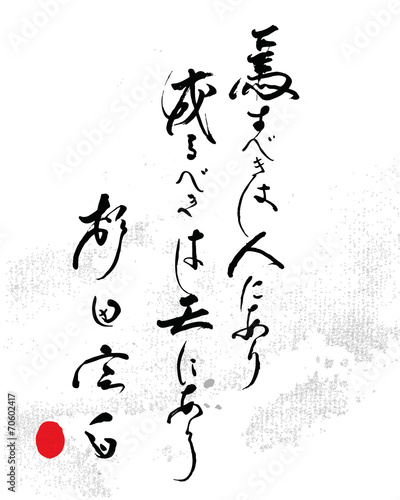 為すべきは人にあり
成るべきは天にあり
杉田玄白
Adobe Stock
#70602417